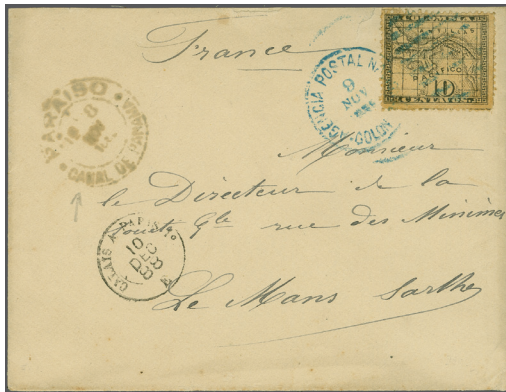 France
COLOMBIA
PACIFICO
10
CENTAVOS
AGENCIA POSTAL
9
NOV
COLON
PARAISO
8
CANAL DE PANAMA
Monsieur
le Directeur de la
rue des Minimes
CALAIS A PARIS
10
DEC
88
Le Mans Sarthe